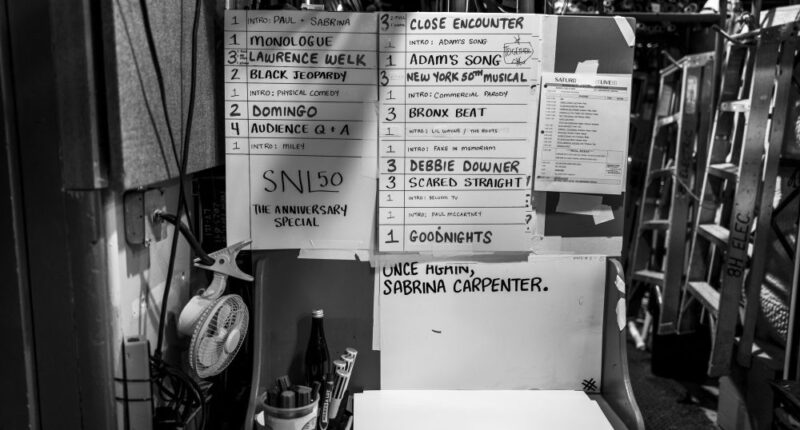 1 INTRO: PAUL + SABRINA
1 MONOLOGUE
3 LAWRENCE WELK
2 BLACK JEOPARDY
1 INTRO: PHYSICAL COMEDY
2 DOMINGO
4 AUDIENCE Q + A
1 INTRO: MILEY
SNL50
THE ANNIVERSARY
SPECIAL
3 CLOSE ENCOUNTER
1 INTRO: ADAM'S SONG
TOGETHER
1 ADAM'S SONG
3 NEW YORK 50TH MUSICAL
1 INTRO: COMMERCIAL PARODY
3 BRONX BEAT
1 INTRO: LIL WAYNE / THE ROOTS
1 INTRO: FAKE IN MEMORIAM
3 DEBBIE DOWNER
3 SCARED STRAIGHT
1 INTRO: TV
1 INTRO: PAUL MCCARTNEY
1 GOODNIGHTS
ONCE AGAIN,
SABRINA CARPENTER.
8H ELEC